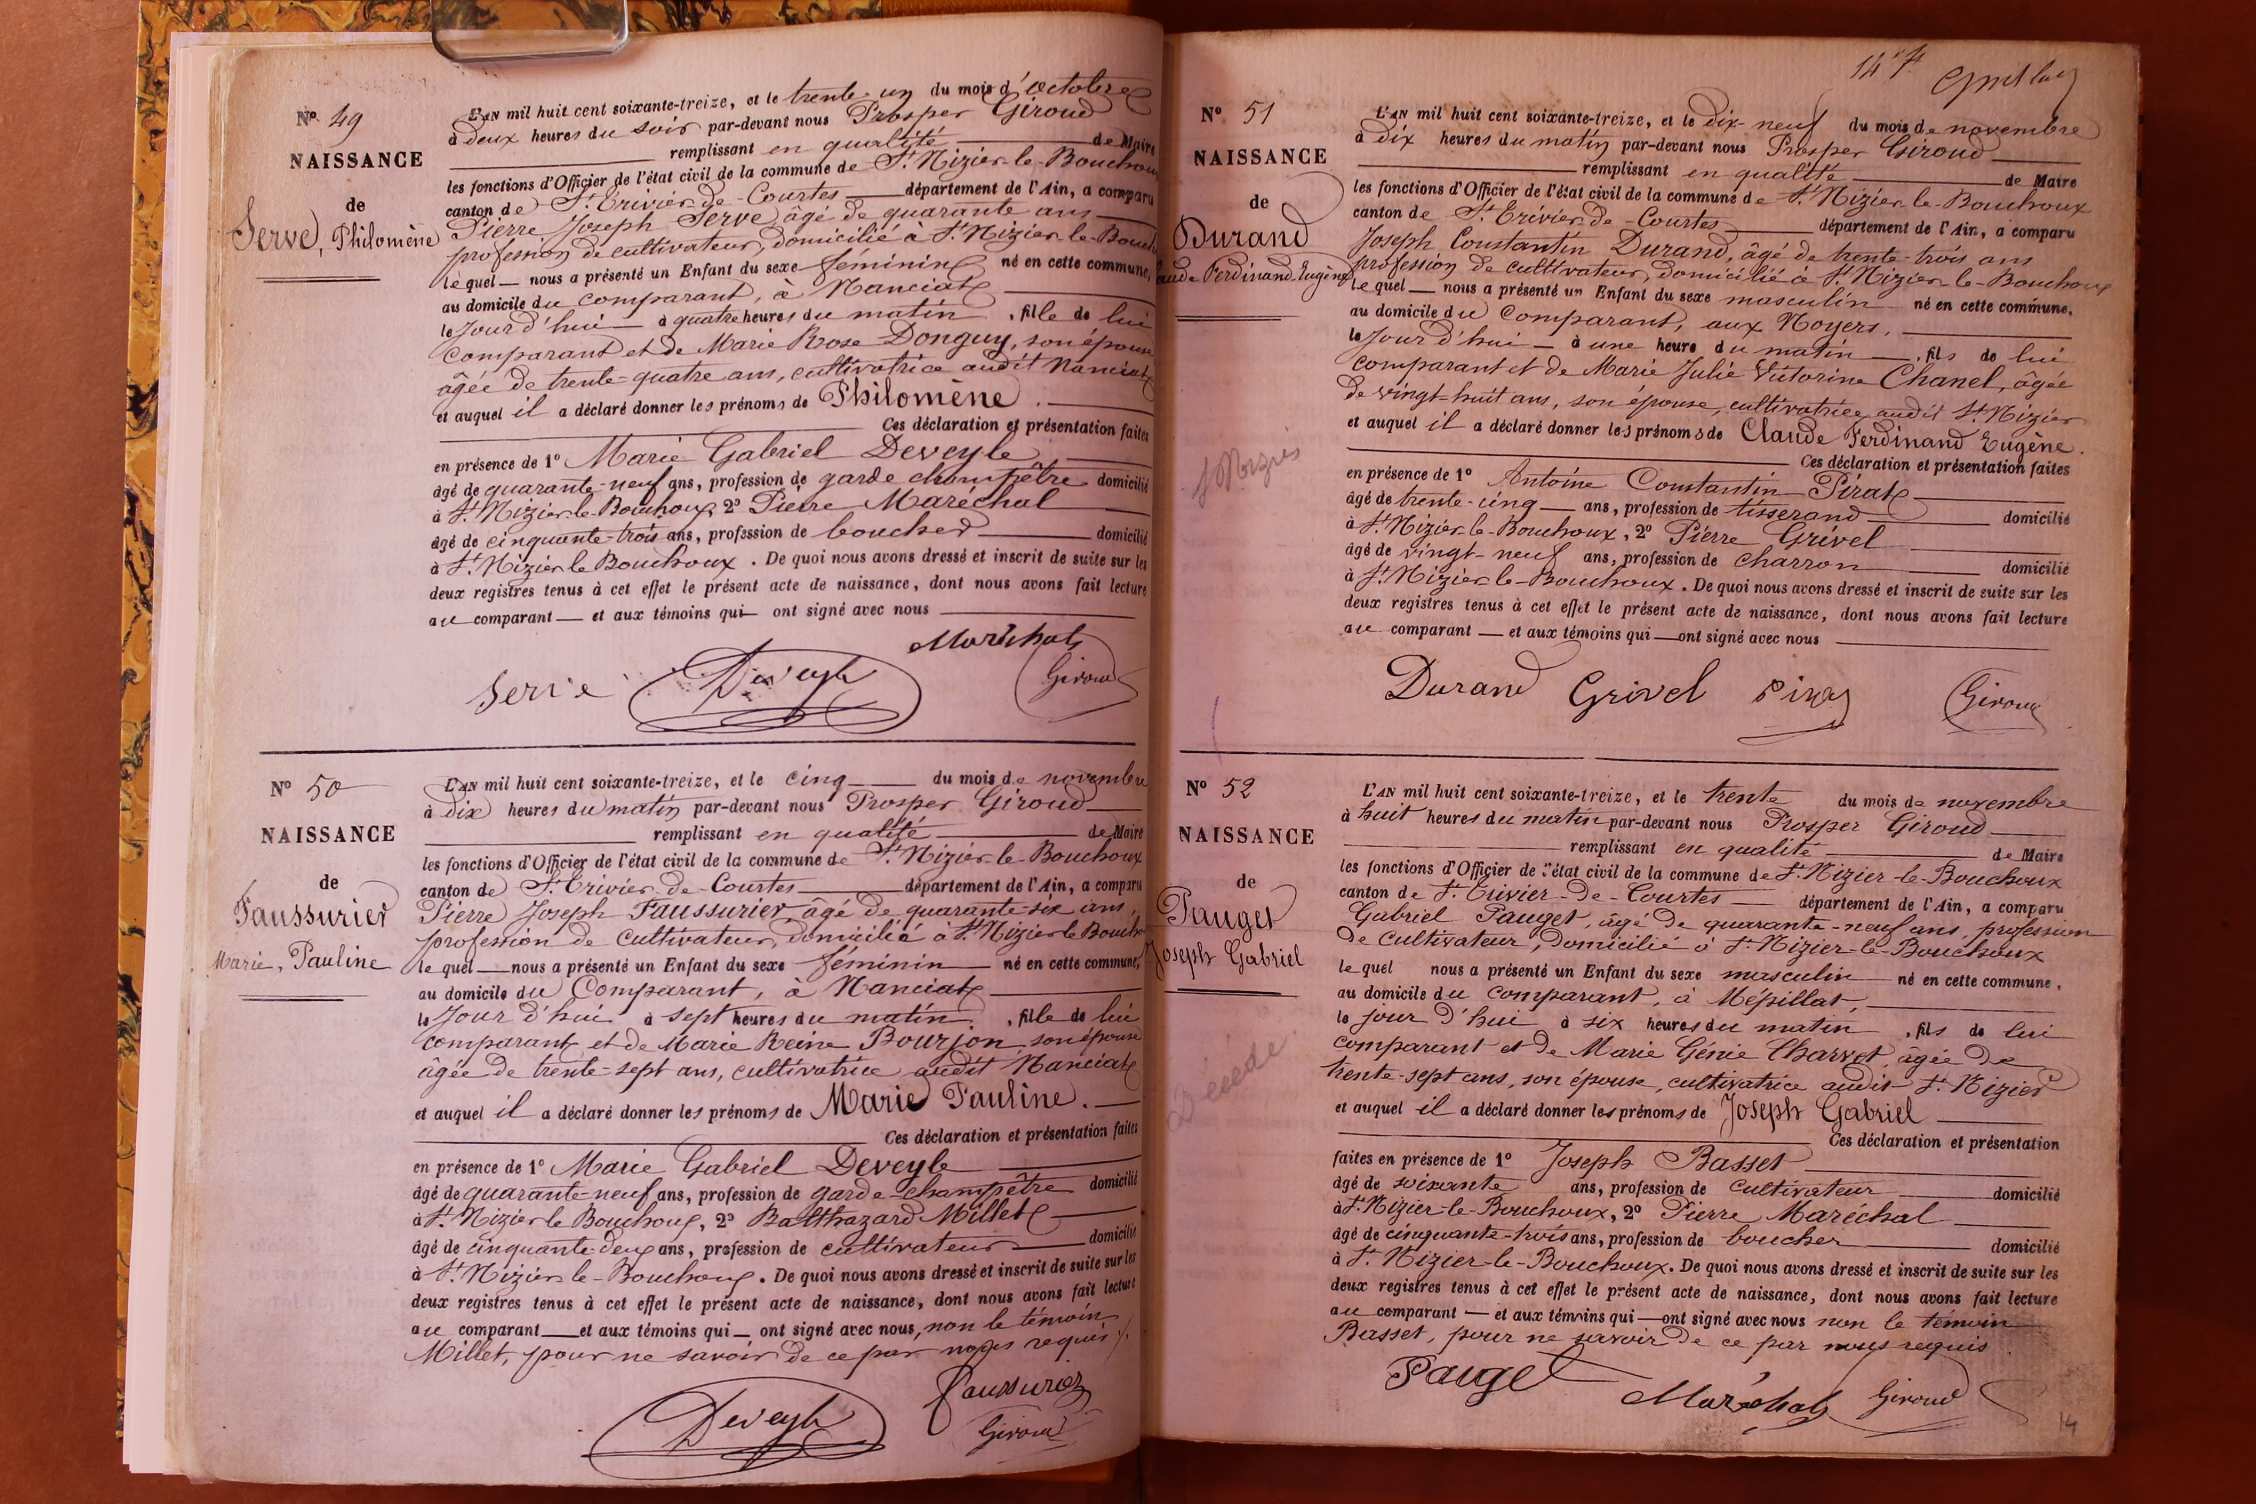 Nº 49
NAISSANCE
de
Serve, Philomène
L'AN mil huit cent soixante-treize, et le trente-un du mois d'octobre
à deux heures du soir par-devant nous Prosper Giroud
remplissant en qualité de Maire
les fonctions d'Officier de l'état civil de la commune de St Nizier-le-Bouchoux
canton de St Trivier-de-Courtes département de l'Ain, a comparu
Pierre Joseph Serve, âgé de quarante ans
profession de cultivateur, domicilié à St Nizier-le-Bouch
lequel nous a présenté un Enfant du sexe féminin né en cette commune,
au domicile du comparant, à Nanciat
le Jour d'hui à quatre heures du matin, fille de lui
comparant et de Marie Rose Donguy, son épouse
âgée de trente-quatre ans, cultivatrice audit Nanciat
et auquel il a déclaré donner les prénoms de Philomène.
Ces déclaration et présentation faites
en présence de 1º Marie Gabriel Deveyle
âgé de quarante-neuf ans, profession de garde champêtre domicilié
à St Nizier-le-Bouchoux, 2º Pierre Maréchal
âgé de cinquante-trois ans, profession de boucher domicilié
à St Nizier-le-Bouchoux. De quoi nous avons dressé et inscrit de suite sur les
deux registres tenus à cet effet le présent acte de naissance, dont nous avons fait lecture
au comparant et aux témoins qui ont signé avec nous
Maréchal
Serve Deveyle Giroud
Nº 50
NAISSANCE
de
Faussurier
Marie, Pauline
L'AN mil huit cent soixante-treize, et le cinq du mois de novembre
à dix heures du matin par-devant nous Prosper Giroud
remplissant en qualité de Maire
les fonctions d'Officier de l'état civil de la commune de St Nizier-le-Bouchoux
canton de St Trivier-de-Courtes département de l'Ain, a comparu
Pierre Joseph Faussurier, âgé de quarante-six ans,
profession de cultivateur, domicilié à St Nizier le Bouch
lequel nous a présenté un Enfant du sexe féminin né en cette commune,
au domicile du Comparant, à Nanciat
le Jour d'hui à sept heures du matin, fille de lui
comparant et de Marie Reine Bourjon, son épouse
âgée de trente-sept ans, cultivatrice audit Nanciat
et auquel il a déclaré donner les prénoms de Marie Pauline.
Ces déclaration et présentation faites
en présence de 1º Marie Gabriel Deveyle
âgé de quarante-neuf ans, profession de garde-champêtre domicilié
à St Nizier le Bouchoux, 2º Balthazard Millet
âgé de cinquante-deux ans, profession de cultivateur domicilié
à St Nizier-le-Bouchoux. De quoi nous avons dressé et inscrit de suite sur les
deux registres tenus à cet effet le présent acte de naissance, dont nous avons fait lecture
au comparant et aux témoins qui ont signé avec nous, non le témoin
Millet, pour ne savoir de ce par nous requis.
Faussurier
Deveyle Giroud
Nº 51
NAISSANCE
de
Durand
Claude Ferdinand Eugène
L'AN mil huit cent soixante-treize, et le dix-neuf du mois de novembre
à dix heures du matin par-devant nous Prosper Giroud
remplissant en qualité de Maire
les fonctions d'Officier de l'état civil de la commune de St Nizier-le-Bouchoux
canton de St Trivier-de-Courtes département de l'Ain, a comparu
Joseph Constantin Durand, âgé de trente-trois ans
profession de cultivateur, domicilié à St Nizier-le-Bouchoux
lequel nous a présenté un Enfant du sexe masculin né en cette commune,
au domicile du Comparant, aux Noyers,
le Jour d'hui à une heure du matin, fils de lui
comparant et de Marie Julie Victorine Chanel, âgée
de vingt-huit ans, son épouse, cultivatrice audit St Nizier
et auquel il a déclaré donner les prénoms de Claude Ferdinand Eugène.
Ces déclaration et présentation faites
en présence de 1º Antoine Constantin Pirat
âgé de trente-cinq ans, profession de tisserand domicilié
à St Nizier-le-Bouchoux, 2º Pierre Grivel
âgé de vingt-neuf ans, profession de charron domicilié
à St Nizier-le-Bouchoux. De quoi nous avons dressé et inscrit de suite sur les
deux registres tenus à cet effet le présent acte de naissance, dont nous avons fait lecture
au comparant et aux témoins qui ont signé avec nous
Durand Grivel Pirat Giroud
Nº 52
NAISSANCE
de
Pauget
Joseph Gabriel
Décédé
L'AN mil huit cent soixante-treize, et le trente du mois de novembre
à huit heures du matin par-devant nous Prosper Giroud
remplissant en qualité de Maire
les fonctions d'Officier de l'état civil de la commune de St Nizier-le-Bouchoux
canton de St Trivier-de-Courtes département de l'Ain, a comparu
Gabriel Pauget, âgé de quarante-neuf ans, profession
de cultivateur, domicilié à St Nizier-le-Bouchoux
lequel nous a présenté un Enfant du sexe masculin né en cette commune,
au domicile du comparant, à Mépillat,
le jour d'hui à six heures du matin, fils de lui
comparant et de Marie Génie Charvet, âgée de
trente-sept ans, son épouse, cultivatrice audit St Nizier
et auquel il a déclaré donner les prénoms de Joseph Gabriel
Ces déclaration et présentation
faites en présence de 1º Joseph Basset
âgé de soixante ans, profession de cultivateur domicilié
à St Nizier-le-Bouchoux, 2º Pierre Maréchal
âgé de cinquante-trois ans, profession de boucher domicilié
à St Nizier-le-Bouchoux. De quoi nous avons dressé et inscrit de suite sur les
deux registres tenus à cet effet le présent acte de naissance, dont nous avons fait lecture
au comparant et aux témoins qui ont signé avec nous non le témoin
Basset, pour ne savoir de ce par nous requis.
Pauget Maréchal Giroud
14